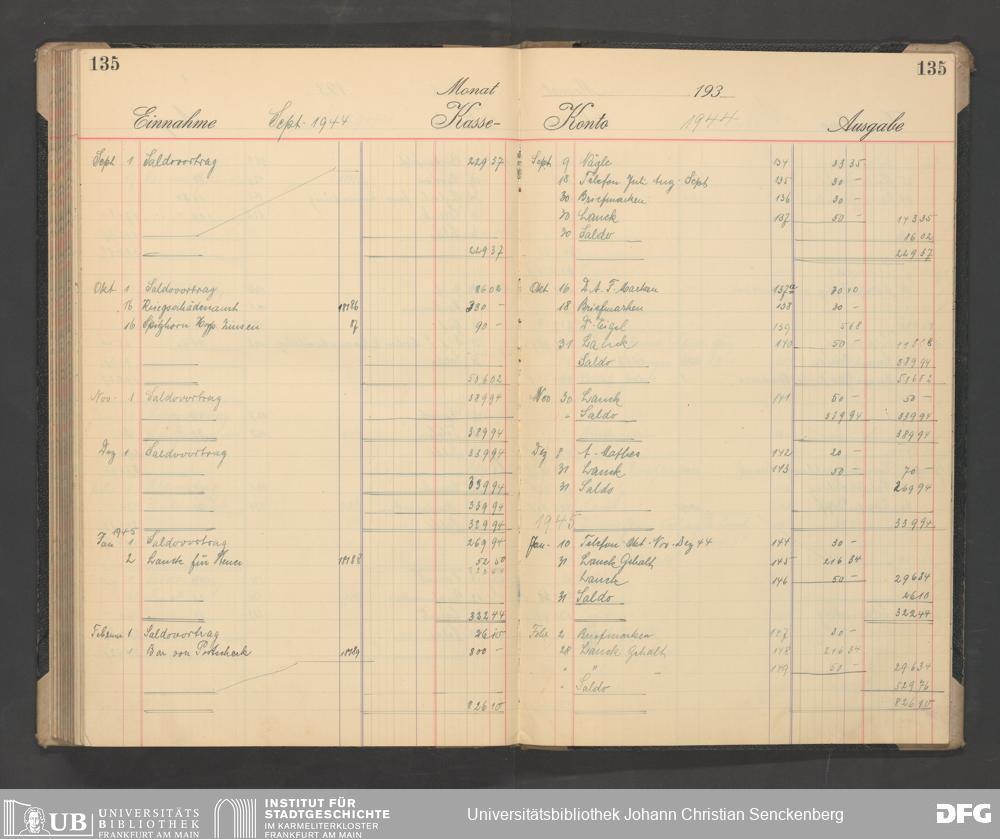 135
Monat
Einnahme Sept. 1944 Kasse-
Sept 1 Saldovortrag 229 37
229 37
Okt 1 Saldovortrag 86 02
16 Kriegsschädenamt 18186 330 –
16 Hyp. Zinsen 87 90 –
506 02
Nov. 1 Saldovortrag 389 94
389 94
Dez 1 Saldovortrag 339 94
339 94
339 94
339 94
1945
Jan 1 Saldovortrag 269 94
2 Lauck für 18188 52 50
322 44
Februar 1 Saldovortrag 26 10
1 Bar von Postscheck 18189 800 –
826 10
135
193
Konto 1944 Ausgabe
Sept. 9 Nägle 134 33 35
18 Telefon Juli Aug. Sept 135 30 –
30 Briefmarken 136 30 –
30 Lauck 137 50 – 143 35
30 Saldo 86 02
229 37
Okt 16 D.A.F. Marken 137a 30 40
18 Briefmarken 138 30 –
139 5 68
31 Lauck 140 50 –
Saldo 389 94
Nov 30 Lauck 141 50 – 50 –
" Saldo 339 94 339 94
389 94
Dez 8 A. Mathes 142 20 –
31 Lauck 143 50 – 70 –
31 Saldo 269 94
339 94
1945
Jan. 10 Telefon Okt. Nov. Dez 44 144 30 –
31 Lauck Gehalt 145 216 34
Lauck 146 50 – 296 34
31 Saldo 26 10
322 44
Febr 2 Briefmarken 147 30 –
28 Lauck Gehalt 148 216 34
" " – 149 50 – 296 34
" Saldo 529 76
826 10
UB UNIVERSITÄTS
BIBLIOTHEK
FRANKFURT AM MAIN
INSTITUT FÜR
STADTGESCHICHTE
IM KARMELITERKLOSTER
FRANKFURT AM MAIN
Universitätsbibliothek Johann Christian Senckenberg
DFG